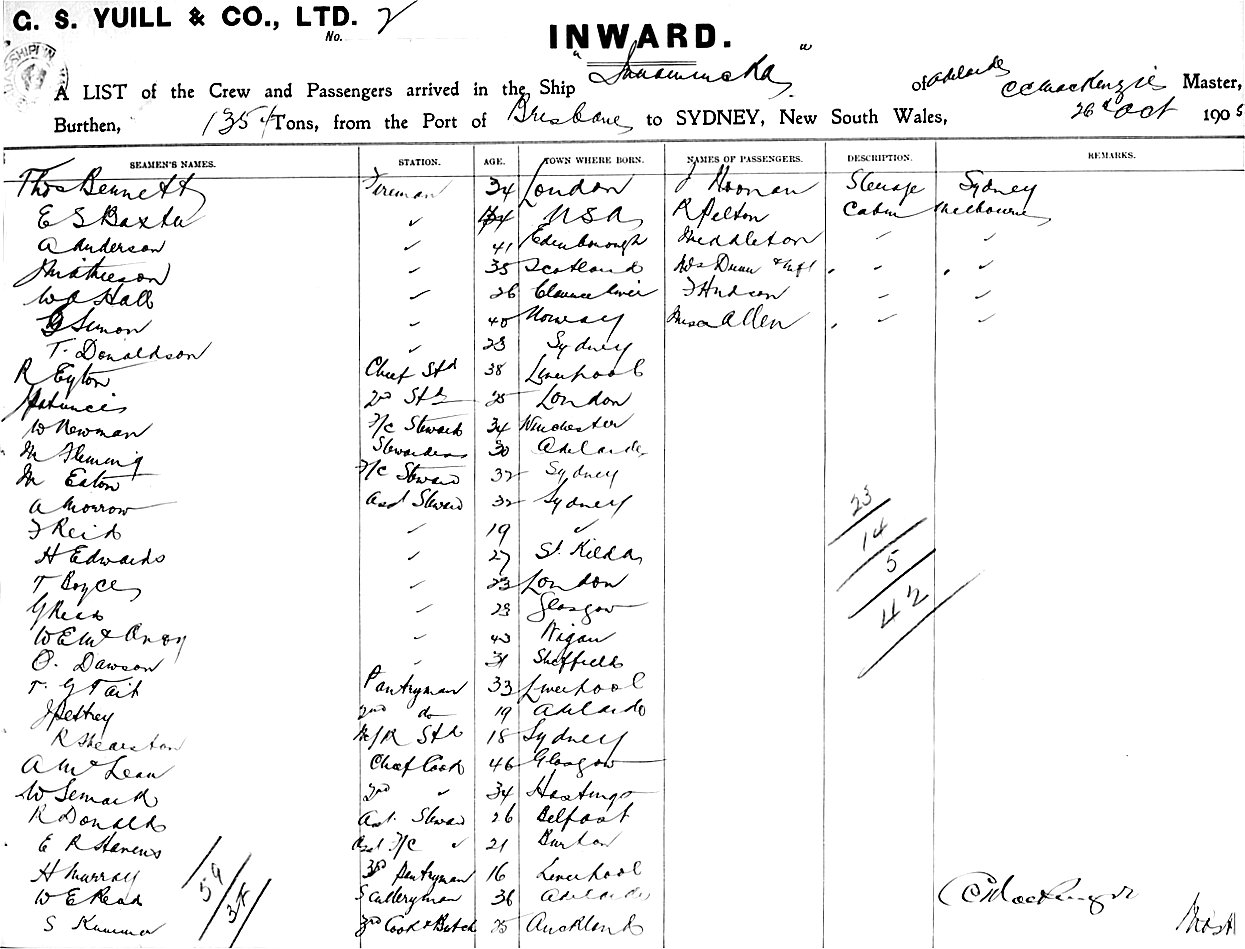 G. S. YUILL & CO., LTD.
No. 2
INWARD.
A LIST of the Crew and Passengers arrived in the Ship "Innamincka" of Adelaide C C MacKenzie Master,
Burthen, Tons, from the Port of Brisbane to SYDNEY, New South Wales, 26th Oct 1905
SEAMEN'S NAMES. STATION. AGE. TOWN WHERE BORN. NAMES OF PASSENGERS. DESCRIPTION. REMARKS.
Thos Bennett Fireman 34 London J Noonan Steerage Sydney
E S Baxter ✓ 34 USA R Pelton Cabin Melbourne
A Anderson ✓ 41 Edenborough Middleton ✓ ✓
J Mathieson ✓ 35 Scotland Mrs Dunn & Inft ✓ ✓
W A Hall ✓ 26 Clarence River F Hudson ✓ ✓
G Simon ✓ 40 Norway Allen ✓ ✓
T. Donaldson ✓ 23 Sydney
R Eyton Chief Std 38 Liverpool
2nd Std 25 London
W Newman F/c Steward 34 Winchester
M Fleming Stewardess 30 Adelaide
M Eaton F/c Steward 32 Sydney
A Morrow Asst Steward 32 Sydney
F Reid ✓ 19 ✓
H Edwards ✓ 27 St. Kilda
T Boyce ✓ 23 London
G Reid ✓ 23 Glasgow
W E Mc ✓ 43 Wigan
O. Dawson ✓ 31 Sheffield
T. G Tait Pantryman 33 Liverpool
J Pettrey 2nd do 19 Adelaide
R Shearston M/R Std 18 Sydney
A McLean Chief Cook 46 Glasgow
W 2nd ✓ 34 Hastings
R Donald Ast. Steward 26 Belfast
E R Stevens Asst F/c ✓ 21 Burton
H Murray 3rd Pantryman 16 Liverpool
W E Read Sculleryman 36 Adelaide
S 3rd Cook & Butch 25 Auckland
23
14
5
42
59
C C MacKenzie
Mast